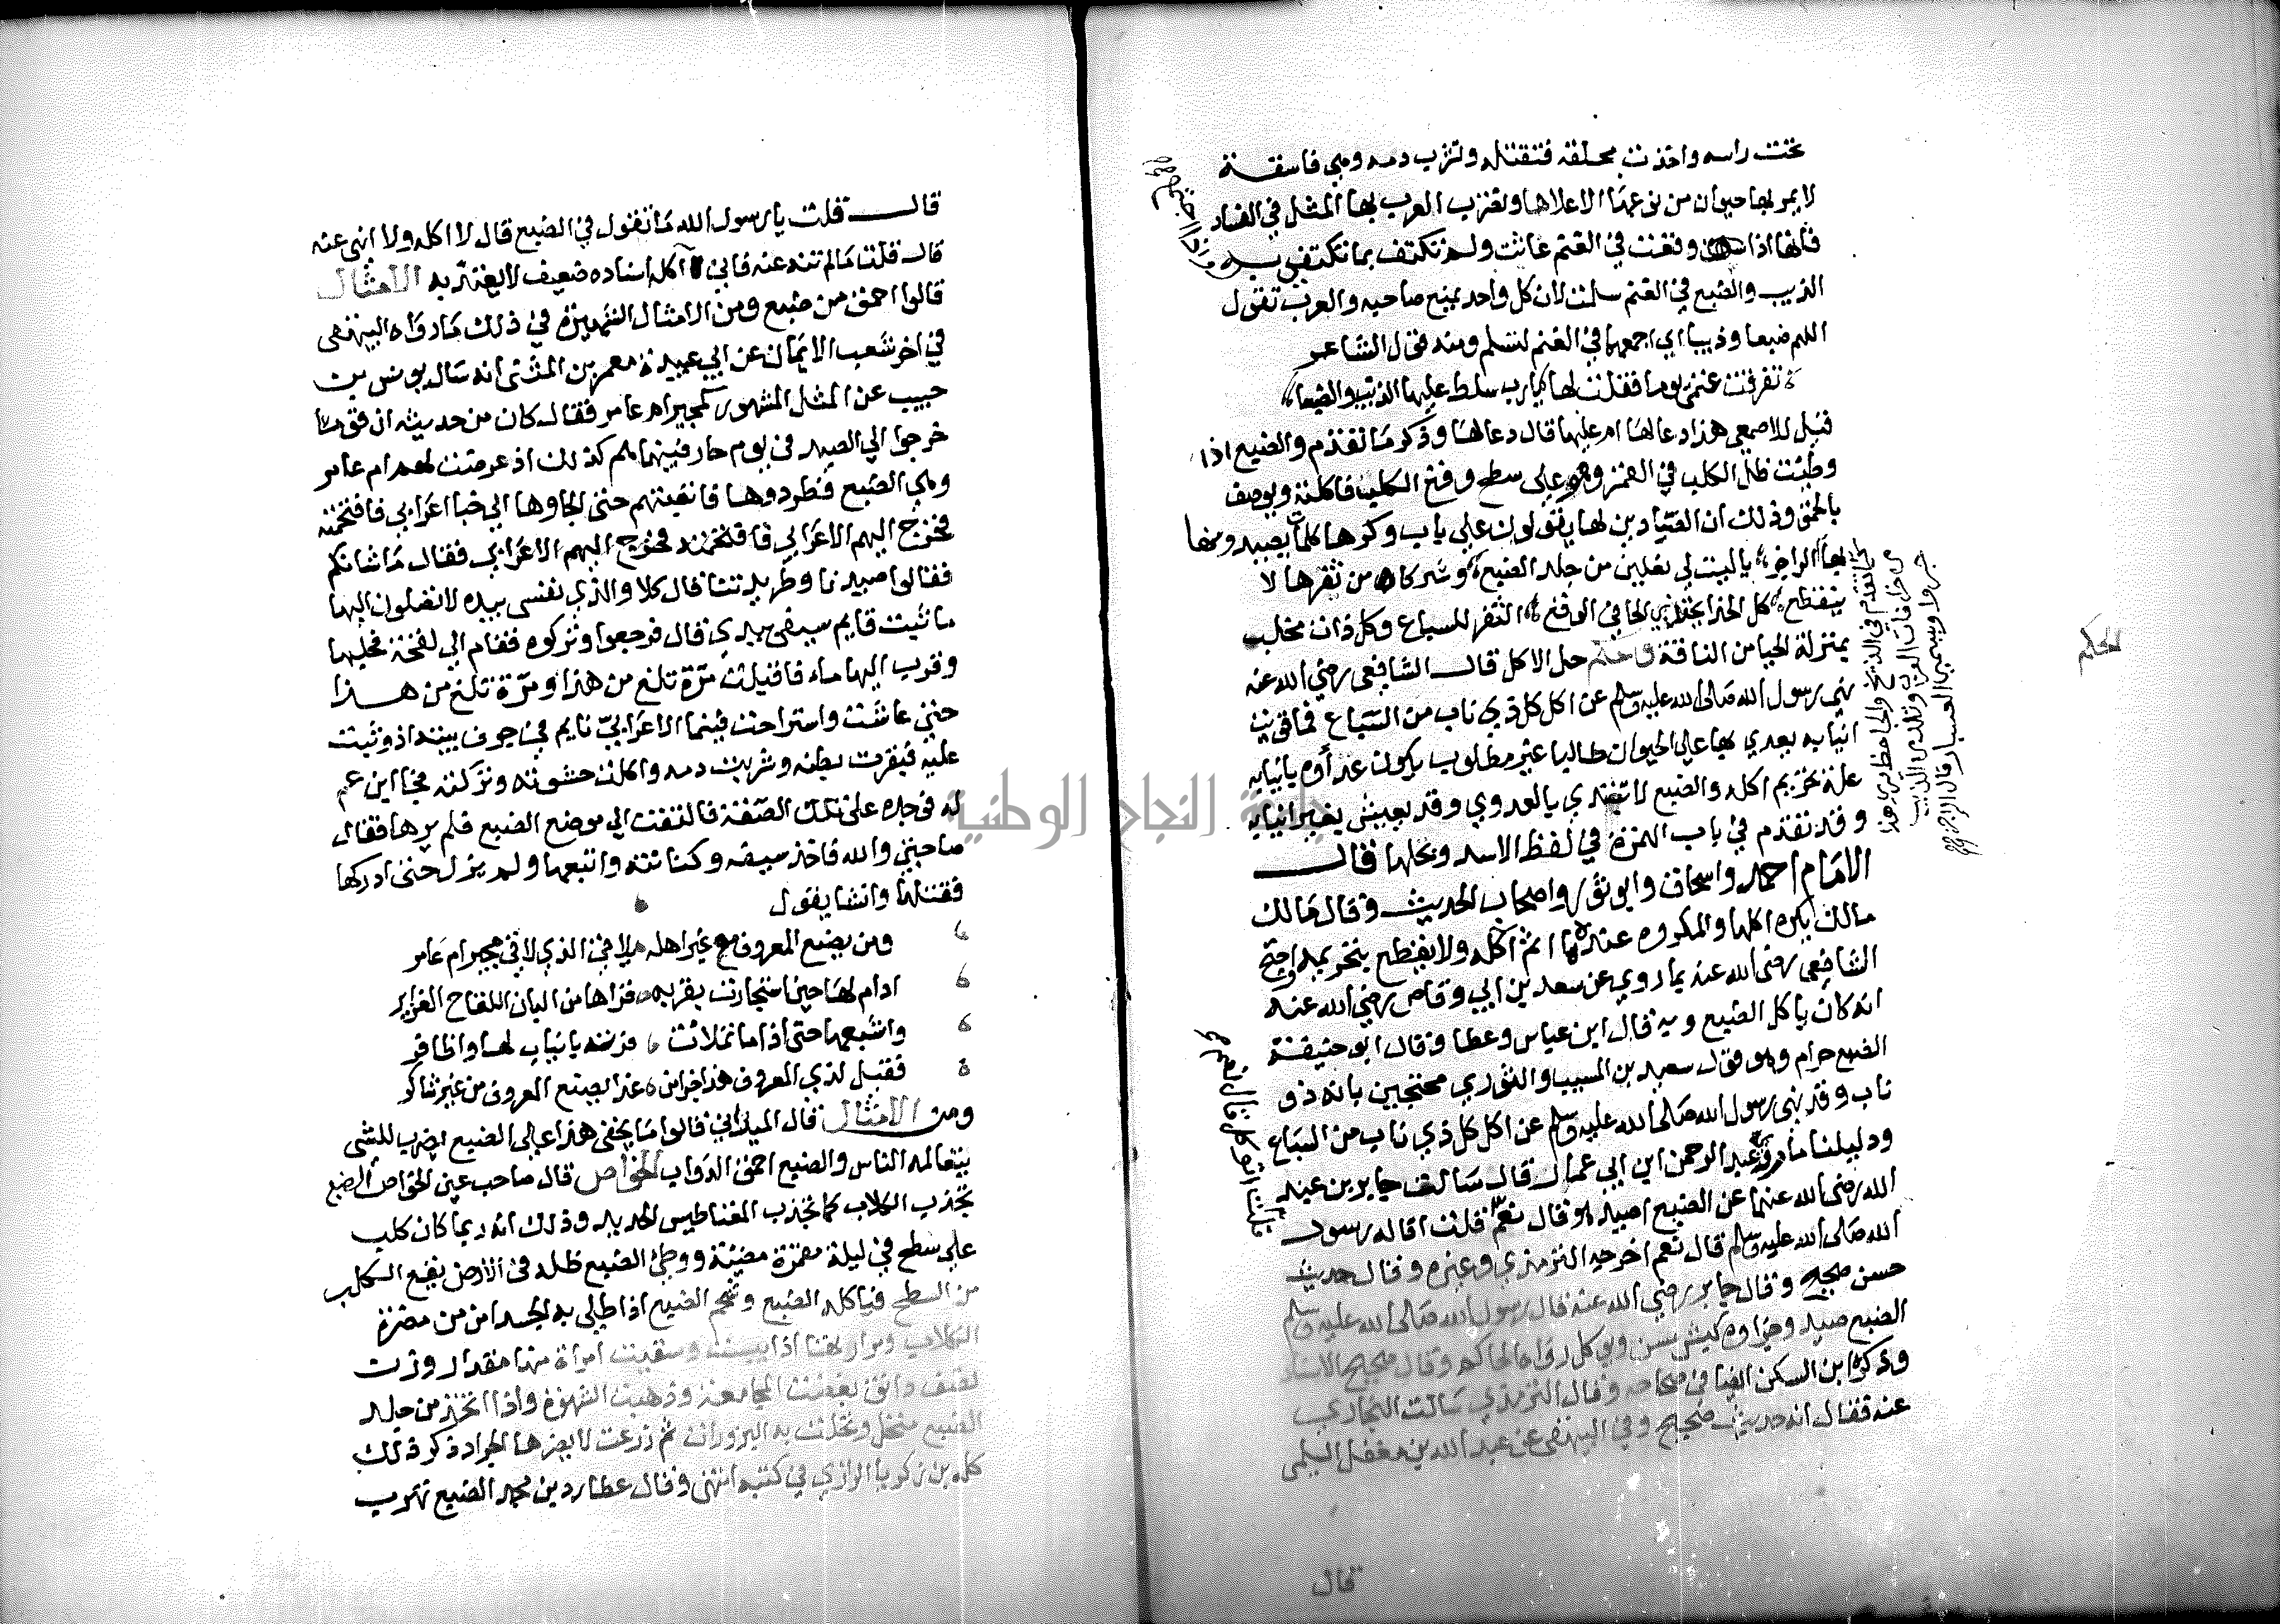 تحت راسه واخذت بحلقه فتقتله وتشرب دمه وهي فاسقة
لا يمر بها حيوان من نوعها الا علاها وتضرب العرب بها المثل في الفساد
فانها اذا وقعت في الغنم عاثت ولم تكتف بما يكتفي به
واذا اجتمع
الذيب والضبع في الغنم سلمت لان كل واحد يمنع صاحبه والعرب تقول
اللهم ضبعا وذيبا اي اجمعهما في الغنم لتسلم ومنه قول الشاعر
تفرقت غنمي يوما فقلت لها يارب سلط عليها الذيب والضبعا
قيل للاصمعي هذا دعا لها ام عليها قال دعا لها وذكر ما تقدم والضبع اذا
وطئت ظل الكلب في القمر وهو على سطح وقع الكلب فاكلته ويوصف
بالحمق وذلك ان الصيادين لها يقولون على باب وكرها كلمات يصيدونها
بها
كما تقدم في الذيخ والجاحظ يرى هذا
من خرافات العرب وتلد من الذيب
جروا ويسمى العسبار قال الراجز
الراجز ياليت لي نعلين من جلد الضبع وشركا من ثفرها لا
ينقطع كل الحذا يحتذي الحافي الوقع الثفر للسباع وكل ذات مخلب
بمنزلة الحيا من الناقة وحكم حل الاكل قال الشافعي رضي الله عنه
الحكم
نهى رسول الله صلى الله عليه وسلم عن اكل كل ذي ناب من السباع فما قويت
انيابه يعدي بها على الحيوان طالبا غير مطلوب يكون عداؤه بانيابه
علة تحريم اكله والضبع لا يتغدى بالعدوى وقد يعيش بغير انيابه
وقد تقدم في باب الهمزة في لفظ الاسد وبحلها قال
الامام احمد واسحاق وابو ثور واصحاب الحديث وقال مالك
مالك يكره اكلها والمكروه عنده ما اثم اكله ولا يقطع بتحريمه واحتج
الشافعي رضي الله عنه بما روي عن سعد بن ابي وقاص رضي الله عنه
انه كان ياكل الضبع وبه قال ابن عباس وعطا وقال ابو حنيفة
الضبع حرام وهو قول سعيد بن المسيب والثوري محتجين بانه ذو
ناب وقد نهى رسول الله صلى الله عليه وسلم عن اكل كل ذي ناب من السباع
ودليلنا ما رواه عبد الرحمن ابن ابي عمار قال سالت جابر بن عبد
الله رضي الله عنهما عن الضبع اصيد هو قال نعم قلت اقاله رسول
قلت اتوكل قال نعم
الله صلى الله عليه وسلم قال نعم اخرجه الترمذي وغيره وقال حديث
حسن صحيح وقال جابر رضي الله عنه قال رسول الله صلى الله عليه وسلم
الضبع صيد وجزاوه كبش مسن ويوكل رواه الحاكم وقال صحيح الاسناد
وذكره ابن السكن ايضا في صحاحه وقال الترمذي سالت البخاري
عنه فقال انه حديث صحيح وفي البيهقي عن عبد الله بن مغفل السلمي
قال
قال قلت يا رسول الله ما تقول في الضبع قال لا اكله ولا انهى عنه
قال قلت ما لم تنه عنه فاني آكله اسناده ضعيف لا يغتر به الامثال
قالوا احمق من ضبع ومن الامثال الشهيرة في ذلك ما رواه البيهقي
في اخر شعب الايمان عن ابي عبيدة معمر بن المثنى انه سال يونس بن
حبيب عن المثل المشهور كمجير ام عامر فقال كان من حديثه ان قوما
خرجوا الى الصيد في يوم حار فبينما هم كذلك اذ عرضت لهم ام عامر
وهي الضبع فطردوها فاتعبتهم حتى الجاوها الى خبا اعرابي فاقتحمته
فخرج اليهم الاعرابي فاقتحمته فخرج اليهم الاعرابي فقال ما شانكم
فقالوا صيدنا وطريدتنا قال كلا والذي نفسي بيده لا تصلون اليها
ما ثبت قايم سيفي بيدي قال فرجعوا وتركوه فقام الى لقحة فحلبها
وقرب اليها ماء فاقبلت مرة تلغ من هذا ومرة تلغ من هذا
حتى عاشت واستراحت فبينما الاعرابي نايم في جوف بيته اذ وثبت
عليه فبقرت بطنه وشربت دمه واكلت حشوته وتركته فجا ابن عم
له فوجده على تلك الصفة فالتفت الى موضع الضبع فلم يرها فقال
صاحبتي والله فاخذ سيفه وكنانته واتبعها ولم يزل حتى ادركها
فقتلها وانشا يقول
ومن يصنع المعروف مع غير اهله يلاقي الذي لاقى مجير ام عامر
ادام لها حين استجارت بقربه قراها من البان اللقاح الغزاير
واشبعها حتى اذا ما تملات فرته بانياب لها واظافر
فقيل لذي المعروف هذا جزا من غدا يصنع المعروف من غير شاكر
ومن الامثال قال الميداني قالوا ما يخفى هذا على الضبع يضرب للشي
يتعالمه الناس والضبع احمق الدواب الخواص قال صاحب عين الخواص الضبع
تجذب الكلاب كما تجذب المغناطيس الحديد وذلك انه ربما كان كلب
على سطح في ليلة مقمرة مضيئة ووطئ الضبع ظله في الارض يقع الكلب
من السطح فياكله الضبع وشحم الضبع اذا طلي به الجسد امن من مضرة
الكلاب ومرارتها اذا يبست وسقيت امراة منها مقدار وزن
نصف دانق بغضت المجامعة وذهبت الشهوة واذا اتخذ من جلد
الضبع منخل ونخلت به البزورات ثم زرعت لا يضرها الجراد ذكر ذلك
كله بن زكريا الرازي في كتبه انتهى وقال عطارد بن محمد الضبع تهرب
جامعة النجاح الوطنية